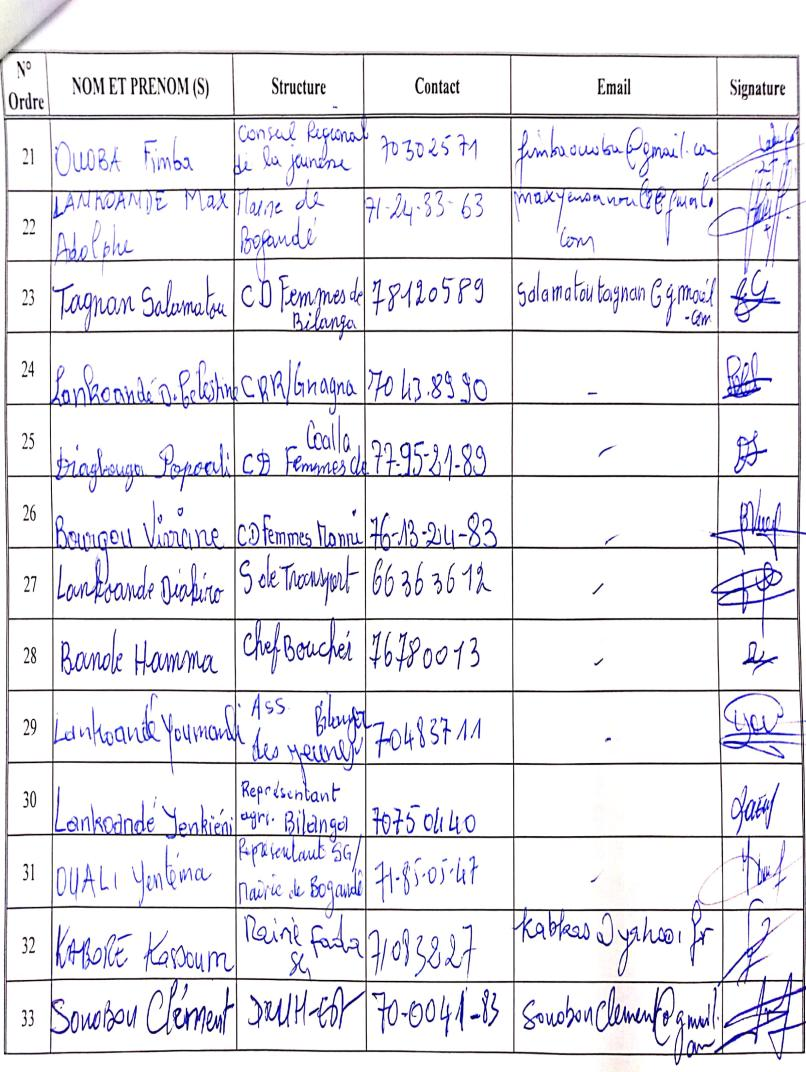 N° Ordre NOM ET PRENOM (S) Structure Contact Email Signature
21 OUOBA Fimba Conseil Régional de la jeunesse 70302571 fimbaouoba@gmail.com
22 LANKOANDE Max Adolphe Mairie de Bogandé 71-24-33-63
23 Tagnan Salamatou CD Femmes de Bilanga 78120589 Salamatoutagnan@gmail.com
24 Lankoandé D. Celestine CRR/Gnagna 7043.8990 -
25 Diagbouga Popoali CD Femmes de Coalla 77-95-21-89 -
26 Bourgou Viviane CD Femmes Manni 76-13-24-83 -
27 Lankoande Diakiro S de Transport 66363612 -
28 Bande Hamma Chef Boucher 76780013 -
29 Lankoandé Youmandi Ass. Bilanga des jeunes 70483711 -
30 Lankoandé Yenkiéni Représentant agri. Bilanga 70750440
31 OUALI Yentéma Représentant SG/ Mairie de Bogandé 71-85-05-47 -
32 KABORE Kassoum Mairie Fada SG 71083227 kabkas@yahoo.fr
33 Sonobou Clément 70-0041-83 SonobouClement@gmail.com